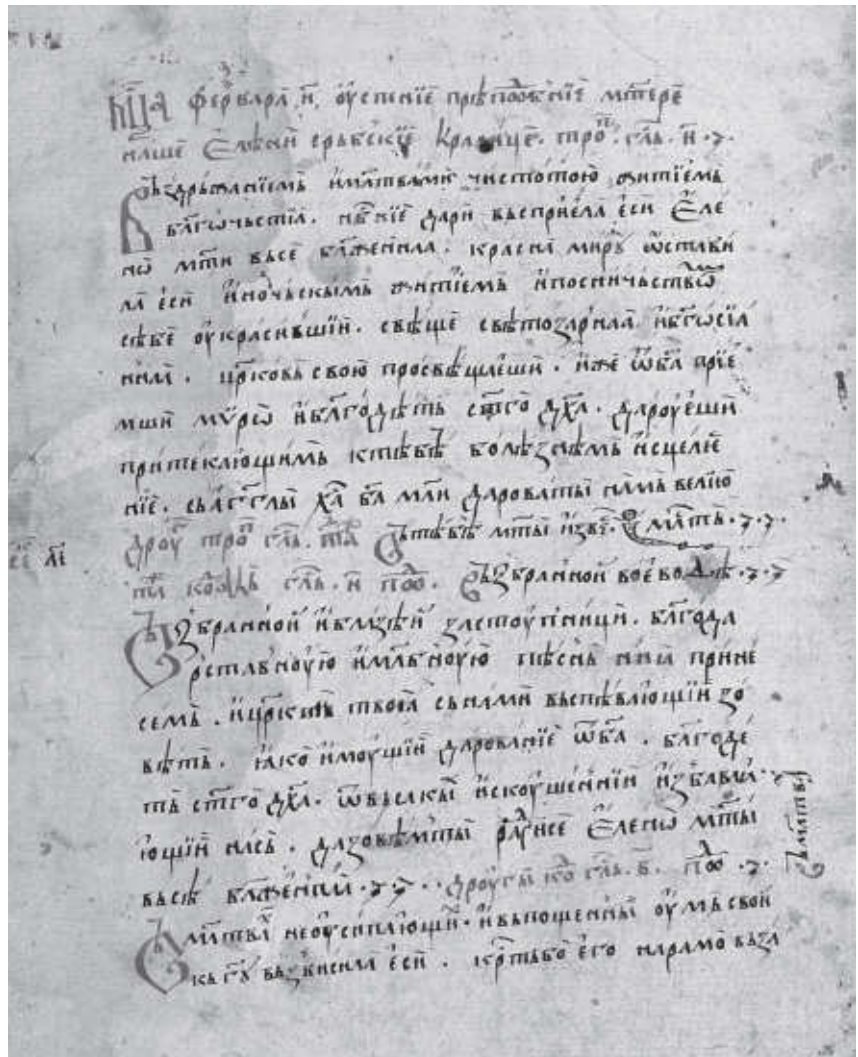 мⷭ҇ца феврꙋара, н҃, оуспенїе прѣпⷣобнїе мт҃ере
наше Єлѣни срьбскїе Кралицѐ. троⷫ҇. гла҃. н҃ .
Въздрьжанїемь и҆мл҃твами чистотою житїемь
бл҃гочьстїа. нб҃нїе дари въспрїела ѥси Єле
нѡ мт҃и въсе блаженнаа. краснаа мирꙋ ѡстави
ла ѥси и҆ночьскымь житїемь и҆посничьствѡⷨ
сѣбе оукрасившїи. свѣще свѣтозарнаа и҆бг҃осїа
ннаа. цр҃ковь свою просвѣщаеши. и҆же ѿба҃ прїе
мши мѵро и҆бл҃годѣть ст҃го дх҃а. дароуѥши
притекающимь ктѣбѣ болѣзнѣмь и҆сцелѥ
нїе. съаг҃глы ха҃ ба҃ мл҃и дароватьі намь велїю
дроуⷢ҇ троⷫ҇ гла҃. Ѡтѣбѣ мт҃ы извⷭ҇.
гла҃. н҃ поⷣⷪ҇. Възбранной воеводѣ
Възбранной и҆близѣй застоупници. бл҃года
рставноую и҆мл҃бноую пѣснь нн҃ѣ прине
семь. и҆цр҃ксть твоꙗ съ нами въспѣвающїи зо
вѣть. ꙗ҆ко и҆моущїи дарованїе ѿба҃. бл҃годѣ
ть ст҃го дх҃а. ѿвьсакы и҆скоушеннїи и҆збавлꙗ
ющїи нась. дазовѣмты раⷣуисе Єлено мт҃ы
въсѣ блаженнїи. дроугьі коⷣ гла҃. в҃. поⷣⷪ҇.
Въ мл҃тва неоусипающїи. и҆въпощенны оумь свой
къ гꙋ҃ възⷡ҇исила ѥси. крⷭ҇тьбо ѥго нарамо взѧ